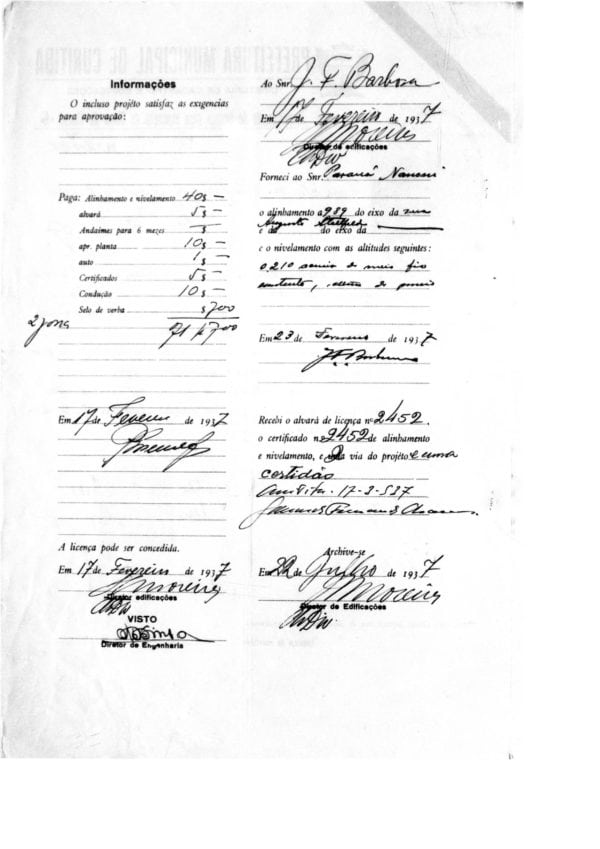 Informações
O incluso projéto satisfaz as exigencias
para aprovação:
Paga: Alinhamento e nivelamento 40$ —
alvará 5$ —
Andaimes para 6 mezes $ —
apr. planta 10$ —
auto 1$ —
Certificados 5$ —
Condução 10$ —
Selo de verba $700
71$700
Em 17 de Fevereiro de 1937
A licença pode ser concedida.
Em 17 de Fevereiro de 1937
Moreira
Diretor edificações
VISTO
Diretor de Engenharia
Ao Snr. J. F. Barboza
Em 17 de Fevereiro de 1937
Moreira
Diretor de edificações
Forneci ao Snr. Paraná
o alinhamento a 989 do eixo da rua
Augusto Stellfeld
e a do eixo da
e o nivelamento com as altitudes seguintes:
0,210 acima do meio fio
Em 23 de Fevereiro de 1937
Recebi o alvará de licença nº 2452.
o certificado nº 2452 de alinhamento
e nivelamento, e via do projéto e uma
certidão
17-3-537
Archive-se
Em 22 de Julho de 1937
Moreira
Diretor de Edificações